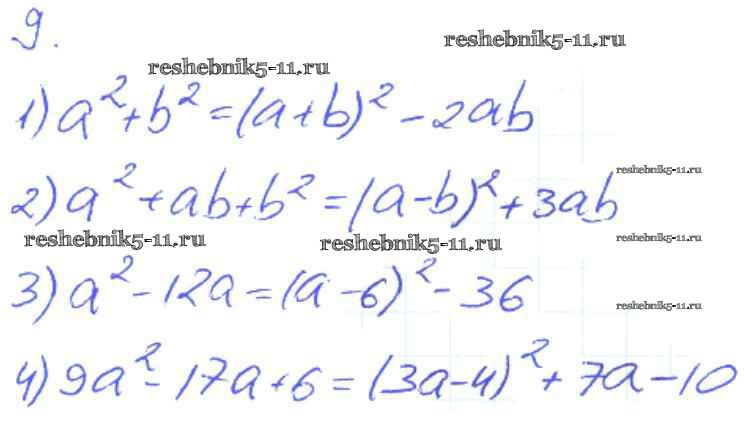 9.
reshebnik5-11.ru
reshebnik5-11.ru
1) a² + b² = (a + b)² - 2ab
reshebnik5-11.ru
2) a² + ab + b² = (a - b)² + 3ab
reshebnik5-11.ru
reshebnik5-11.ru
reshebnik5-11.ru
3) a² - 12a = (a - 6)² - 36
reshebnik5-11.ru
4) 9a² - 17a + 6 = (3a - 4)² + 7a - 10